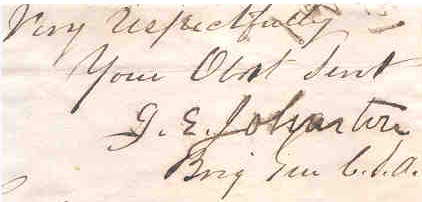 Very respectfully
Your Obdt Servt
J. E. Johnston
Brig Gen C.S.A.